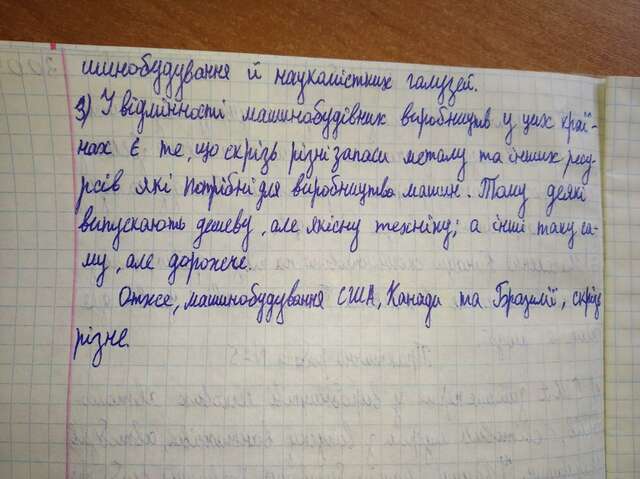 шинобудування й наукамістких галузей.
3) У відмінності машинобудівник виробництв у цих краї-
нах є те, що скрізь різні запаси металу та інших ресу-
рсів які потрібні для виробництва машин. Тому деякі
випускають дешеву, але якісну техніку; а інші таку са-
му, але дорожче.
Отже, машинобудування США, Канади та Бразилії, скрізь
різне.